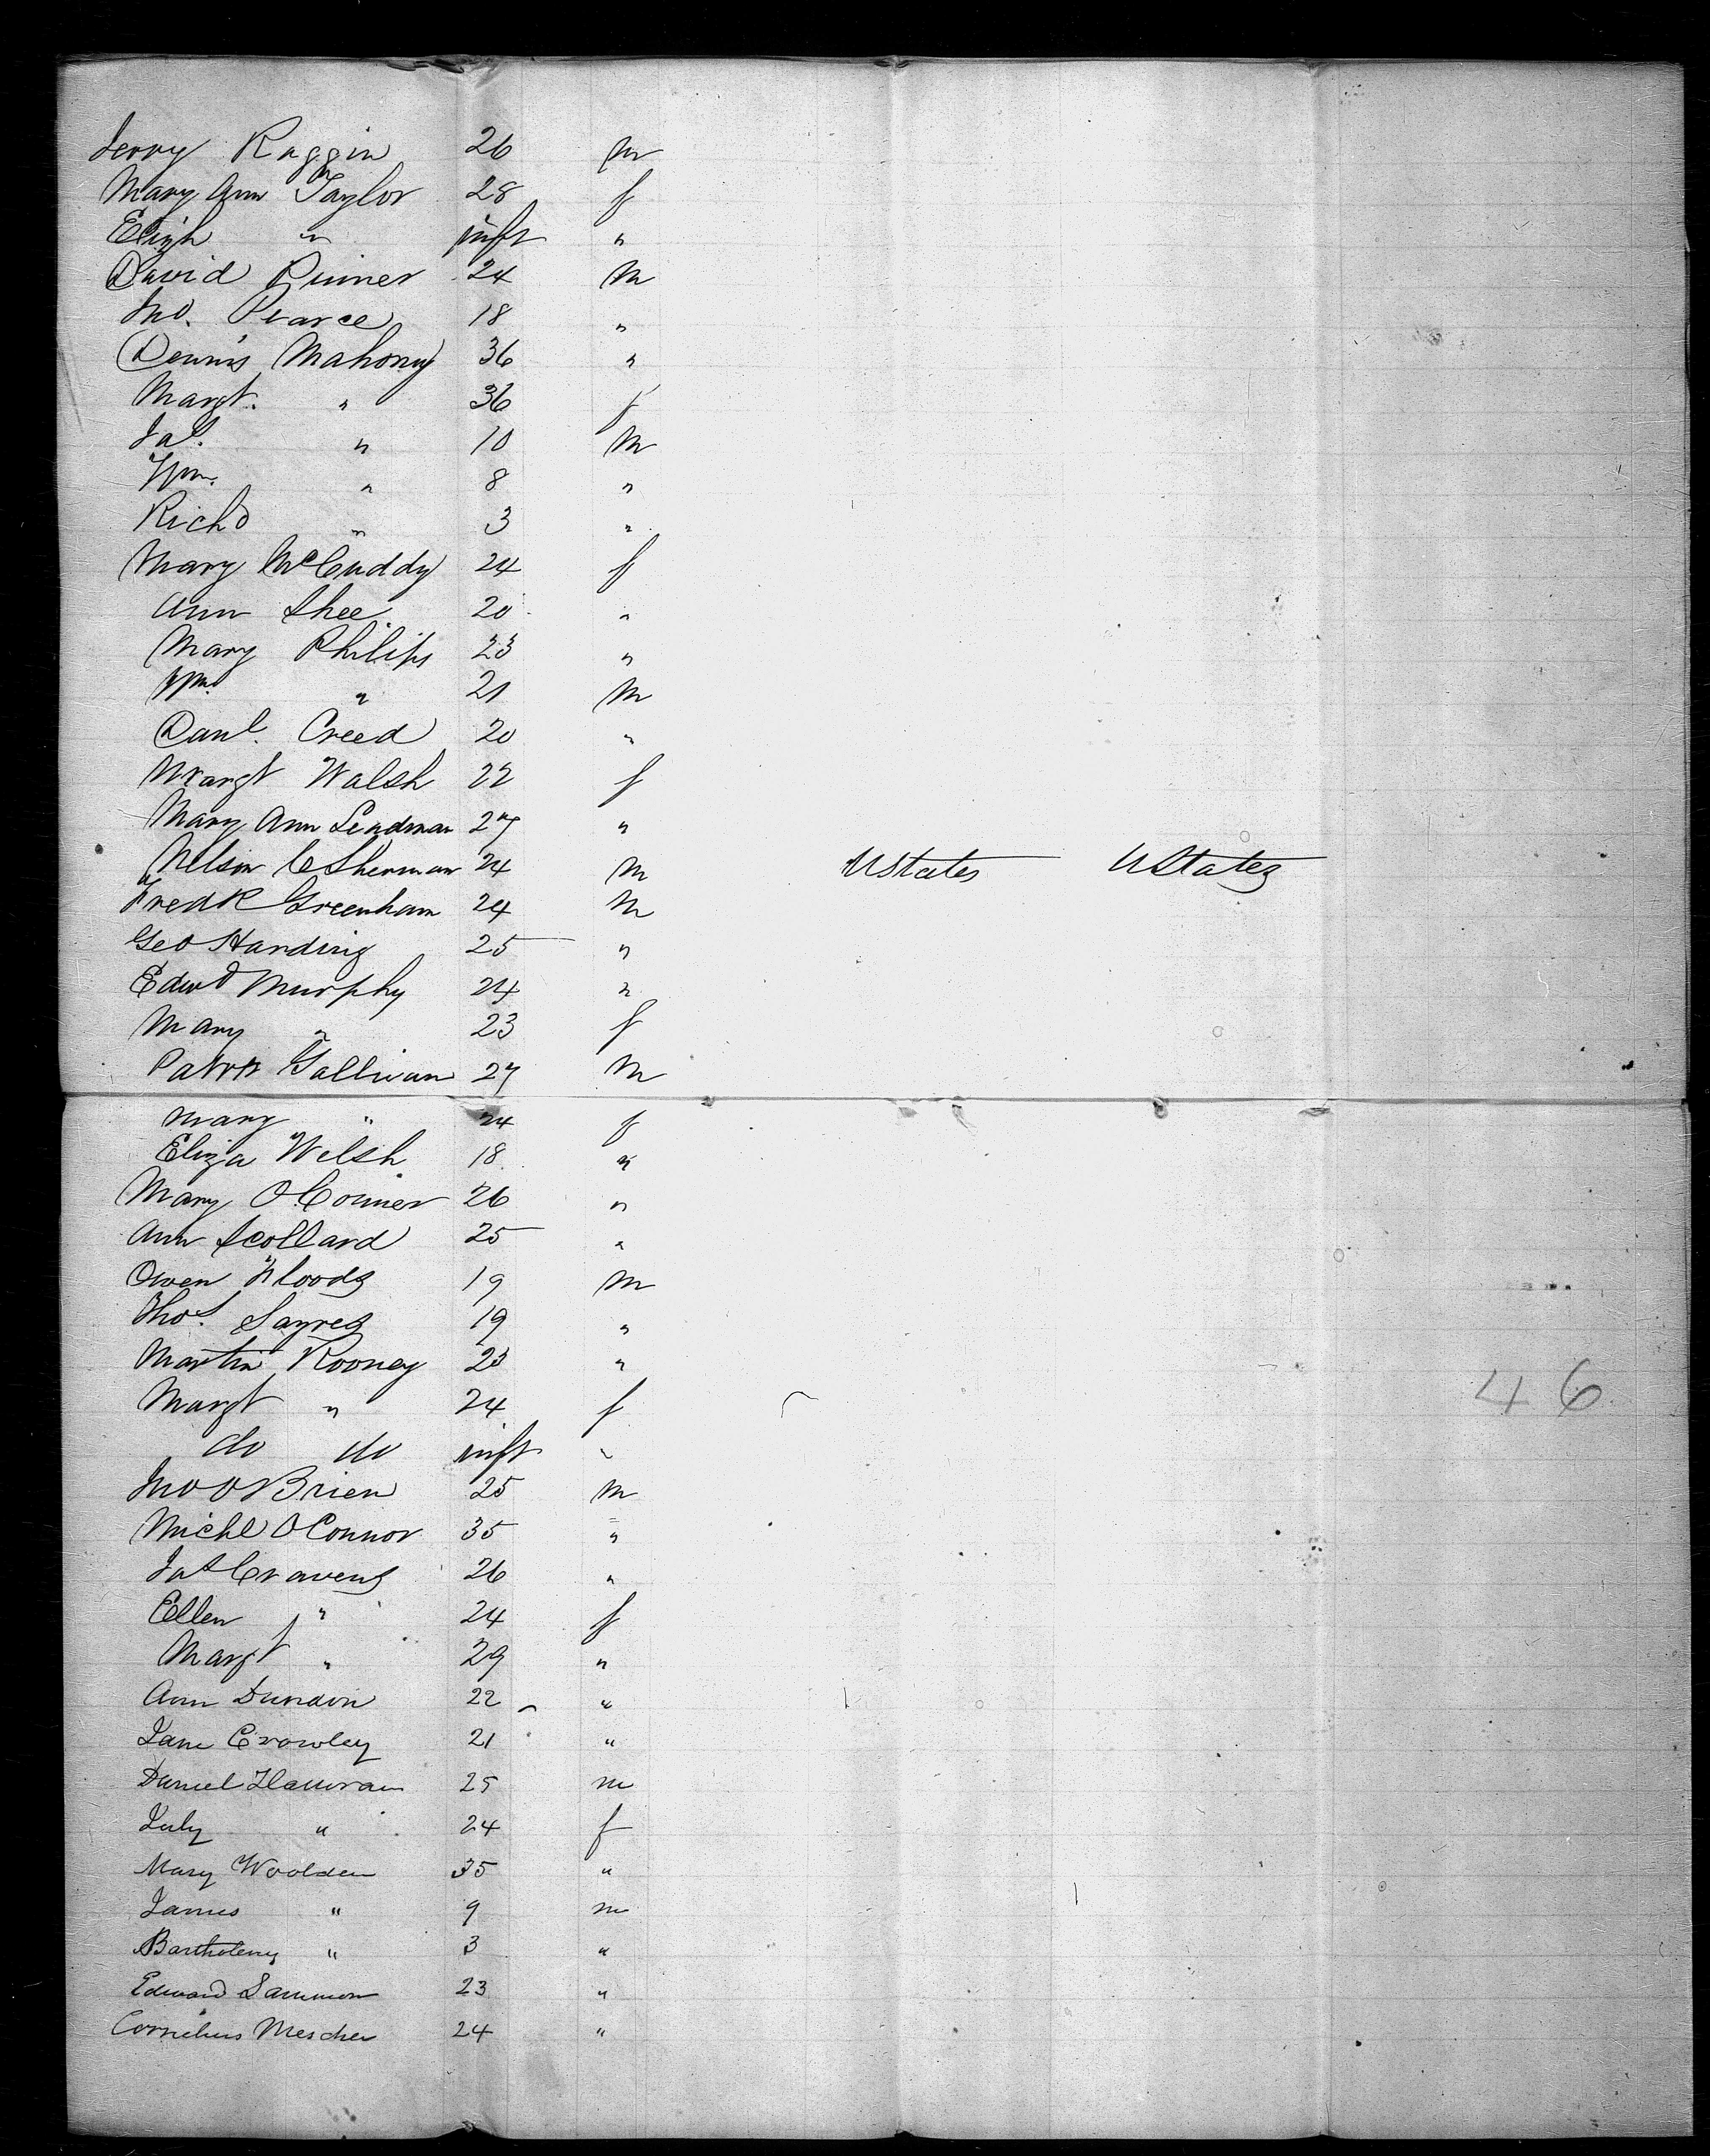 Jerry Raggin 26 m
Mary Ann Taylor 28 f
Elizh " inft "
David Pinner 24 M
Jno. Pearce 18 "
Dennis Mahony 36 "
Margt. " 36 f
Jas. " 10 M
Wm. " 8 "
Richd " 3 "
Mary McCuddy 24 f
Ann Shee 20 "
Mary Philips 23 "
Wm. " 21 M
Danl. Creed 20 "
Margt Walsh 22 f
Mary Ann Lendman 27 "
Nelson C Sherman 24 M UStates UStates
Fredk Greenham 24 M
Geo Harding 25 "
Edwd Murphy 24 "
Mary " 23 f
Patrk Sullivan 27 M
Mary " 24 f
Eliza Welsh 18 "
Mary O.Conner 26 "
Ann Scollard 25 "
Owen Woods 19 M
Thos. Sayres 19 "
Martin Rooney 23 "
Margt " 24 f
do do inft "
Jno OBrien 25 M
Michl OConnor 35 "
Jas Cravens 26 "
Ellen " 24 f
Margt " 29 "
Ann Dundon 22 "
Jane Crowley 21 "
Daniel 25 m
July " 24 f
Mary Woolden 35 "
James " 9 m
Bartholemy " 3 "
Edward Sammon 23 "
Cornelius Mescher 24 "
46